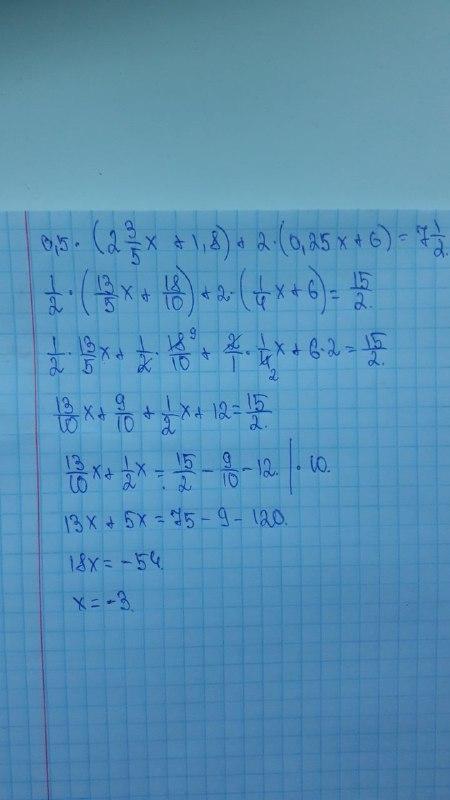 0,5 · (2 3/5 x + 1,8) + 2 · (0,25x + 6) = 7 1/2.
1/2 · (13/5 x + 18/10) + 2 · (1/4 x + 6) = 15/2.
1/2 · 13/5 x + 1/2 · 18/10 9 + 2/1 · 1/4 2 x + 6 · 2 = 15/2.
13/10 x + 9/10 + 1/2 x + 12 = 15/2.
13/10 x + 1/2 x = 15/2 - 9/10 - 12. | · 10.
13x + 5x = 75 - 9 - 120.
18x = -54.
x = -3.